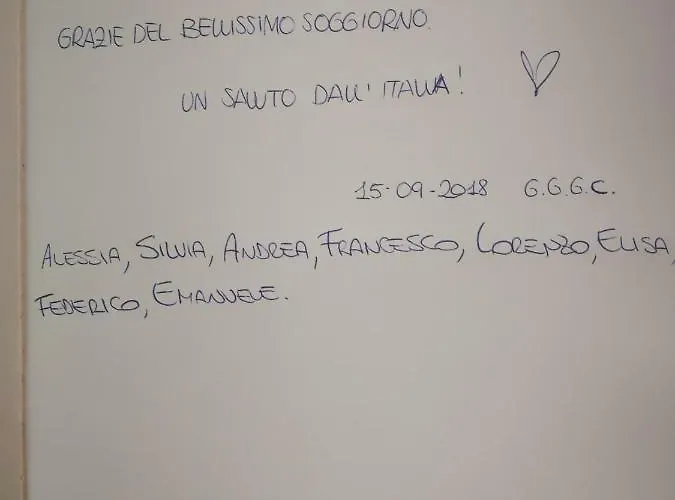 GRAZIE DEL BELLISSIMO SOGGIORNO.
UN SALUTO DALL' ITALIA!
15-09-2018 G.G.G.C.
ALESSIA, SILVIA, ANDREA, FRANCESCO, LORENZO, ELISA,
FEDERICO, EMANUELE.